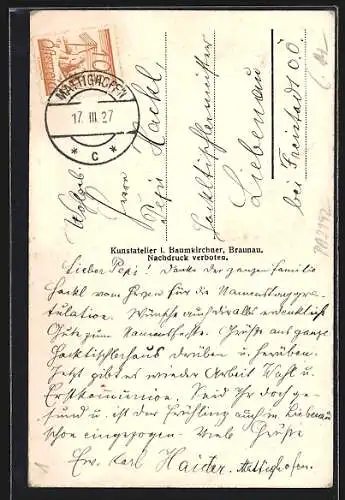 10
Österreich
MATTIGHOFEN
17. III. 27
* c *
Wohlgeb.
Herrn
Pepi Hackl,
Hackltischlermeister
Liebenau
bei Freistadt O.Ö.
Kunstatelier I. Baumkirchner, Braunau.
Nachdruck verboten.
Lieber Pepi! Danke der ganzen Familie
Hackl vom Herzen für die Namenstagsgra-
tulation. Wünsche auch dir alles erdenklich
Gute zum Namensfeste. Grüße ans ganze
Hacktischlerhaus darüben u. herüben.
Jetzt gibt es wieder Arbeit Wahl u.
Erstkommunion. Seid Ihr doch ge-
sund u. ist der Frühling auch in Liebenau
schon eingezogen. Viele Grüße
Ew. Karl Haider. Mattighofen.